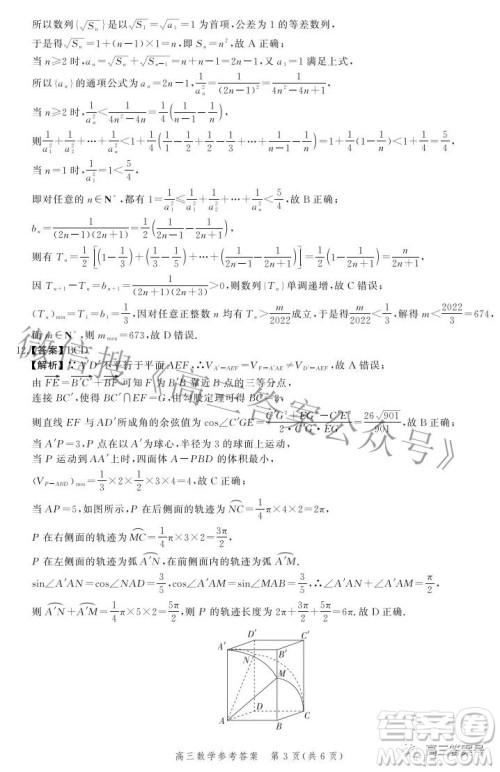 所以数列{√Sₙ}是以√S₁=√a₁=1为首项,公差为1的等差数列,
于是得√Sₙ=1+(n-1)×1=n,即Sₙ=n²,故A正确;
当n≥2时,aₙ=√Sₙ+√Sₙ₋₁=n+n-1=2n-1,又a₁=1满足上式,
所以{aₙ}的通项公式为aₙ=2n-1, 1/aₙ²=1/(2n-1)²=1/(4n²-4n+1),
当n≥2时,1/aₙ²<1/(4n²-4n)=1/4(1/(n-1)-1/n),
则1/a₁²+1/a₂²+…+1/aₙ²<1+1/4(1-1/2+1/2-1/3+…+1/(n-1)-1/n)=1+1/4(1-1/n)<1+1/4=5/4,
当n=1时,1/a₁²=1<5/4,
即对任意的n∈N*,都有1=1/a₁²≤1/a₁²+1/a₂²+…+1/aₙ²<5/4,故B正确;
bₙ=1/((2n-1)(2n+1))=1/2(1/(2n-1)-1/(2n+1)),
则有Tₙ=1/2[(1-1/3)+(1/3-1/5)+…+(1/(2n-1)-1/(2n+1))]=1/2(1-1/(2n+1))=n/(2n+1),
因Tₙ₊₁-Tₙ=bₙ₊₁=1/((2n+1)(2n+3))>0,则数列{Tₙ}单调递增,故C错误;
(Tₙ)min=T₁=b₁=1/3,因对任意正整数n均有Tₙ>m/2022成立,于是得m/2022<1/3,解得m<2022/3=674,
而m∈N*,则mmax=673,故D错误.
12.【答案】BCD
【解析】∵A′D′不平行于平面AEF,∴V A′-AEF=V F-A′AE≠V D′-AEF,故A错误;
由FE=B′F+BF可知F为B′B靠近B的三等分点,
则直线EF与AD′所成角的余弦值为cos∠C′GE=(C′G²+EG²-C′E²)/(2·C′G·EG)=26√901/901,
当A′P=3时,P点在以A′为球心,半径为3的球面上运动,
当P运动到AA′上时,四面体A-PBD的体积最小,
(V P-ABD)min=1/3×2×1/2×3×4=4,故C正确;
当AP=5,如图所示,P在后侧面的轨迹为NC=1/4π×4×2=2π,
P在右侧面的轨迹为MC=1/4π×3×2=3π/2,
P在左侧面的轨迹为弧A′N,在前侧面内的轨迹为弧A′M.
sin∠A′AN=cos∠NAD=3/5,cos∠A′AM=sin∠MAB=3/5,∴∠A′AN+∠A′AM=π/2,
则A′N+A′M=1/4π×5×2=5π/2,则P的轨迹长度为2π+3π/2+5π/2=6π.故D正确.
D′
C′
A′
B′
N
M
D
C
A
B
高三数学参考答案 第3页(共6页)
微信搜《高三答案公众号》
高三答案号